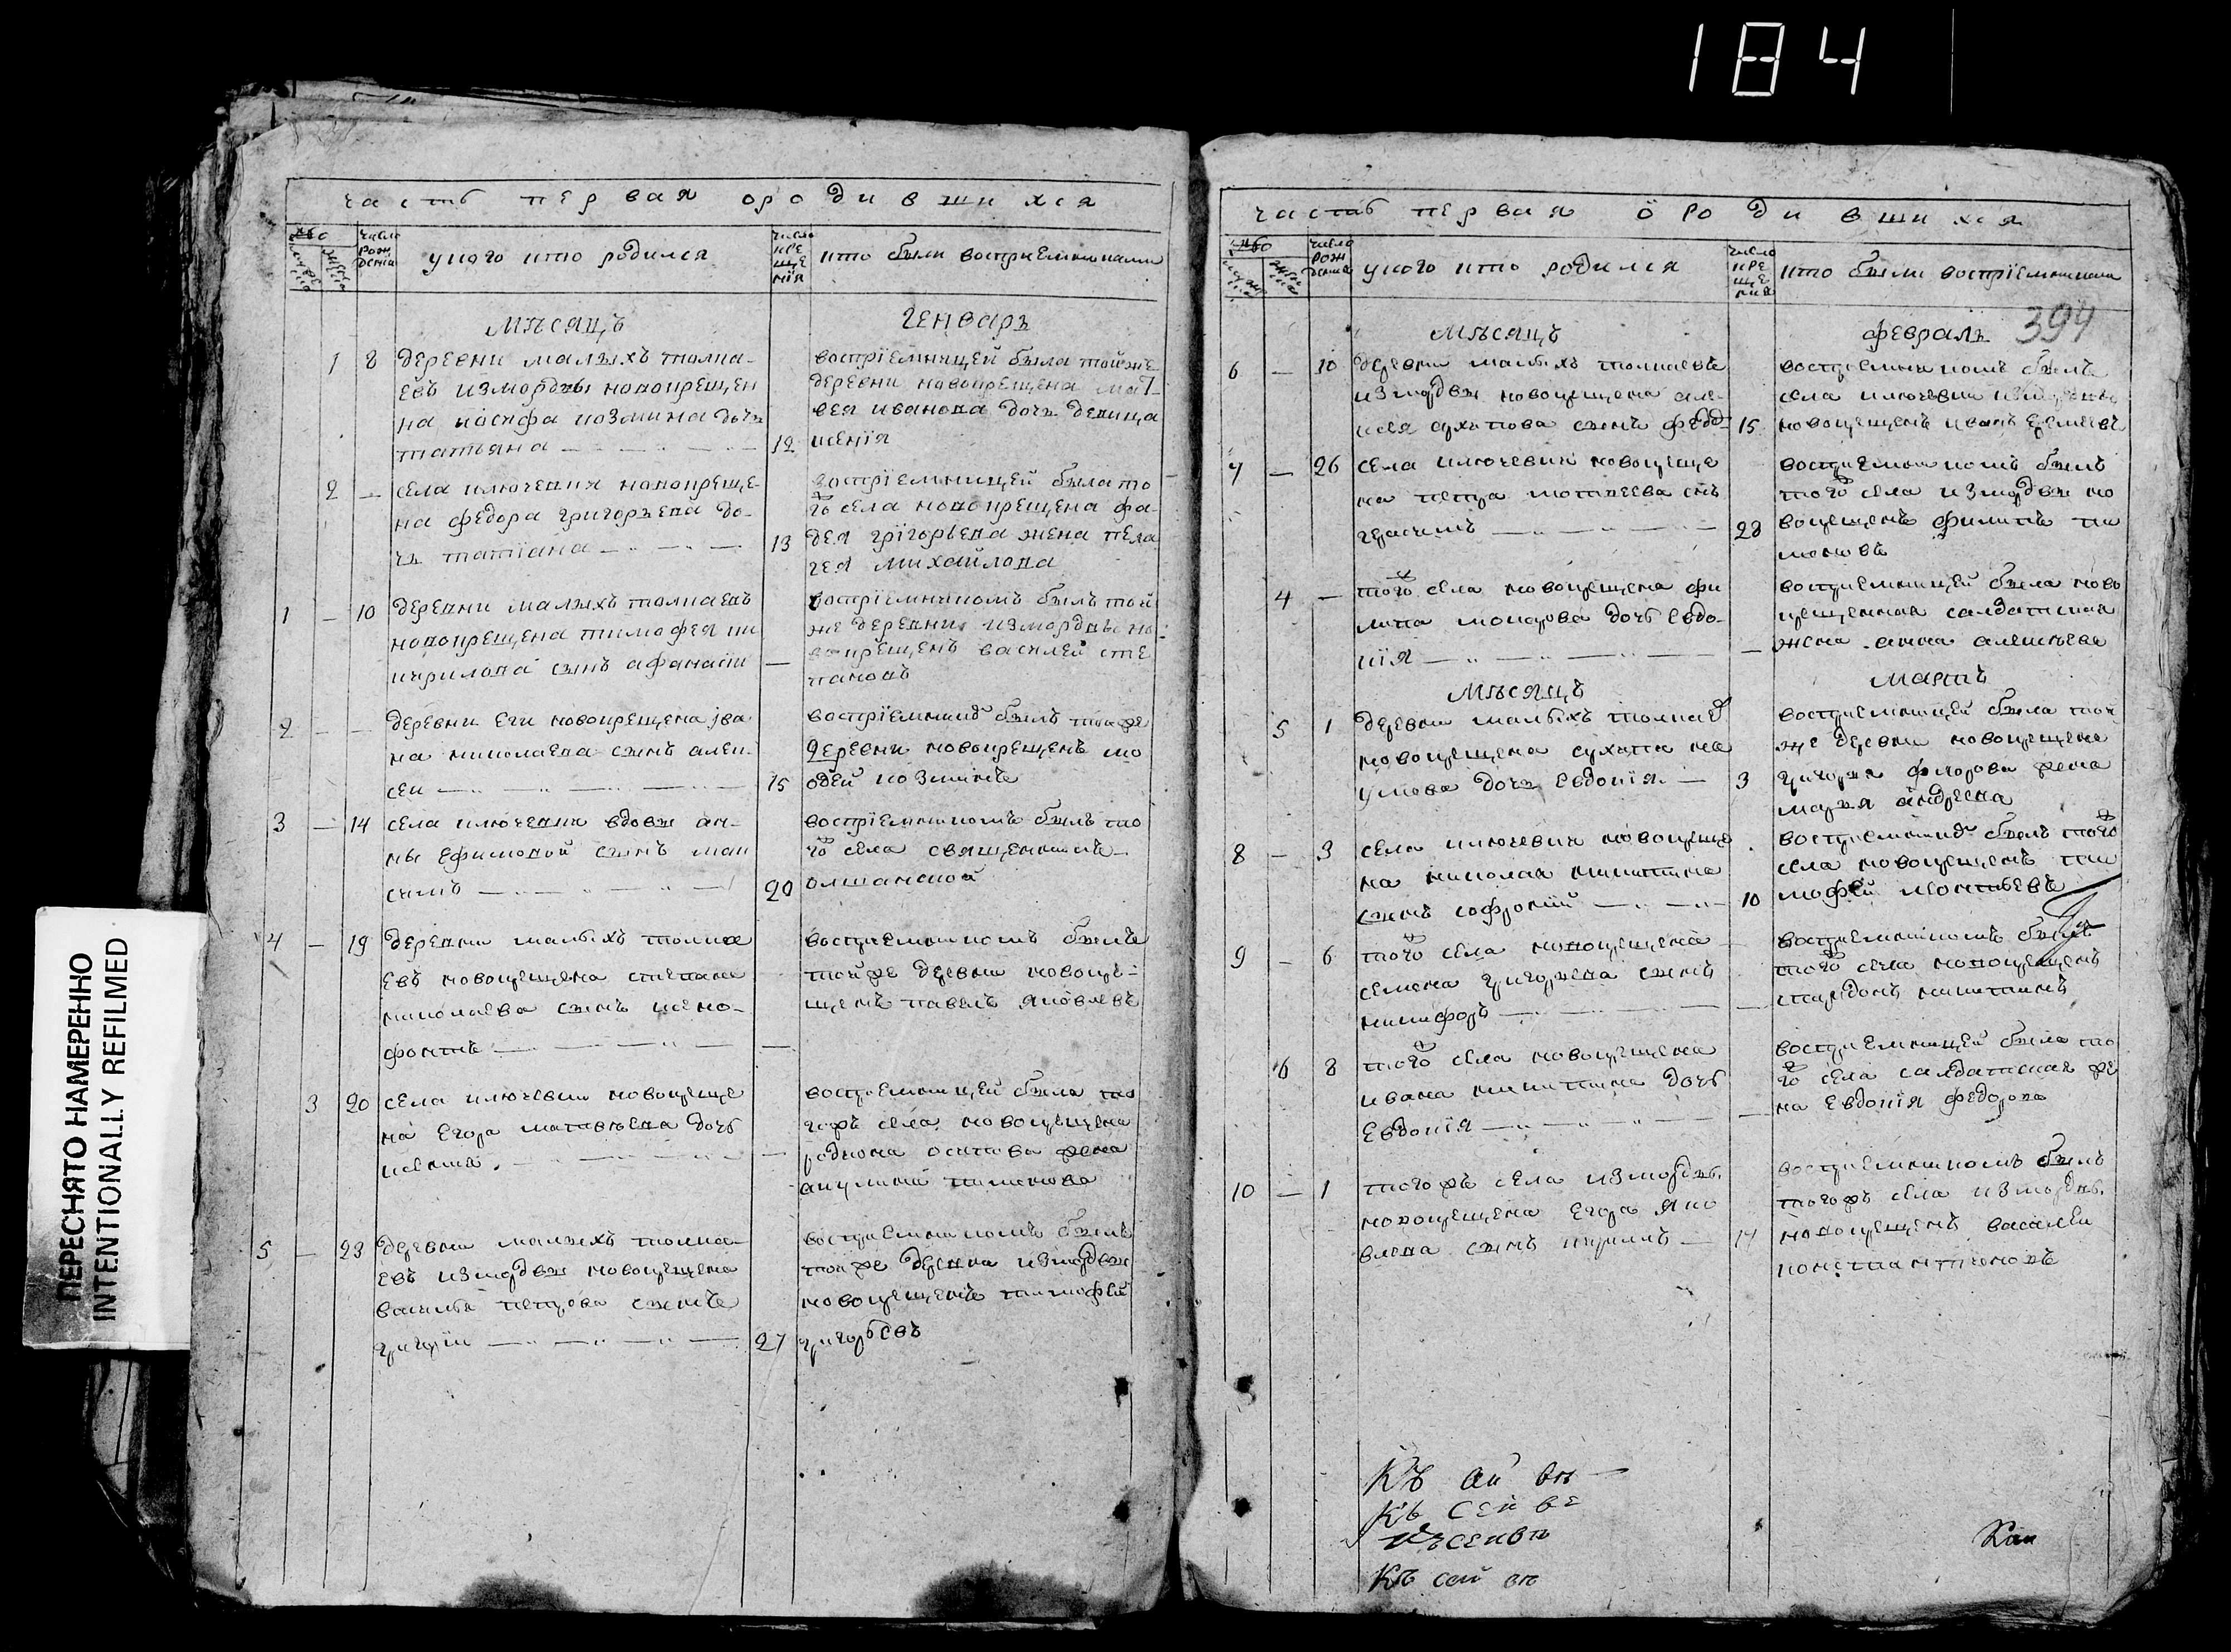 184
часть первая ородившихся
число рождения
у ково кто родился
число крещения
кто были восприемниками
мѣсяцъ генваръ
1 8 деревни малыхъ толка-
евъ измордвы новокрещен
на иосифа козмина дочъ
татьяна 12
восприемницей была тойже
деревни новокрещена мат-
вея иванова дочъ девица
ксения
2 — села ключевки новокреще-
на федора григоръева до-
чъ татиана 13
восприемницей была то
го села новокрещена фа-
дея григоръева жена пела
гея михайлова
1 — 10 деревни малыхъ толкаевъ
новокрещена тимофея ки
кирилова сынъ афанасии —
восприемникомъ былъ той
же деревни измордвы но-
вокрещенъ василей сте
пановъ
2 — — деревни еги новокрещена ива
на николаева сынъ алек-
сеи 15
восприемникъ былъ тояже
деревни новокрещенъ мо
одей козминъ
3 — 14 села ключевки вдовы ан-
ны ефимовой сынъ мак
симъ 20
восприемникомъ былъ то
го села священникъ
олшанской
4 — 19 деревни малыхъ толка
евъ новокрещена степана
николаева сынъ ксено-
фонтъ —
восприемникомъ былъ
тойже деревни новокре-
щенъ павелъ яковлевъ
3 20 села ключевки новокреще
на егора матвѣева дочъ
ксения —
восприемницей была то
гожъ села новокрещена
родиона осипова жена
акулина пименова
5 — 23 деревни малыхъ толка-
евъ измордвы новокрещена
василья петрова сынъ
григории 27
восприемникомъ былъ
тойже деревни измордвы
новокрещенъ тимофей
григорьевъ
часть первая ородившихся
число рождения
у ково кто родился
число крещения
кто были восприемниками
394
мѣсяцъ февралъ
6 — 10 деревни малыхъ толкаевъ
измордвы новокрещена але-
ксея сухопова сынъ федо- 15
восприемникомъ былъ
села ключевки
новокрещенъ иванъ еремеевъ
7 — 26 села ключевки новокреще
на петра моткеева снъ
герасимъ 28
восприемникомъ былъ
того села измордвы но
вокрещенъ филипъ пи
моновъ
4 — того села новокрещена фи
липа мокарова дочь евдо-
кия —
восприемницей была ново
крещенная салдатская
жена анна алексѣева
мѣсяцъ мартъ
5 1 деревни малыхъ толкаев
новокрещена сухапа на
умова дочъ евдокия 3
восприемницей была той
же деревни новокрещена
григоръя фторова жена
маръя андреева
8 — 3 села ключевки новокреще
на николая никитина
сынъ софронии 10
восприемникъ былъ того
села новокрещенъ ти
мофей леонтьевъ
9 — 6 того села новокрещена
семена григоръева сынъ
никифоръ —
восприемникомъ былъ
того села новокрещенъ
спиридонъ никитинъ
6 8 того села новокрещена
ивана никитина дочь
евдокия —
восприемницей была то
го села салдатская же
на евдокия федорова
10 — 1 тогожъ села измордвы
новокрещена егора яко
влева сынъ кирилъ 14
восприемникомъ былъ
тогожъ села измордвы
новокрещенъ василеи
константиновъ
Къ сей вѣ
ПЕРЕСНЯТО НАМЕРЕННО
INTENTIONALLY REFILMED